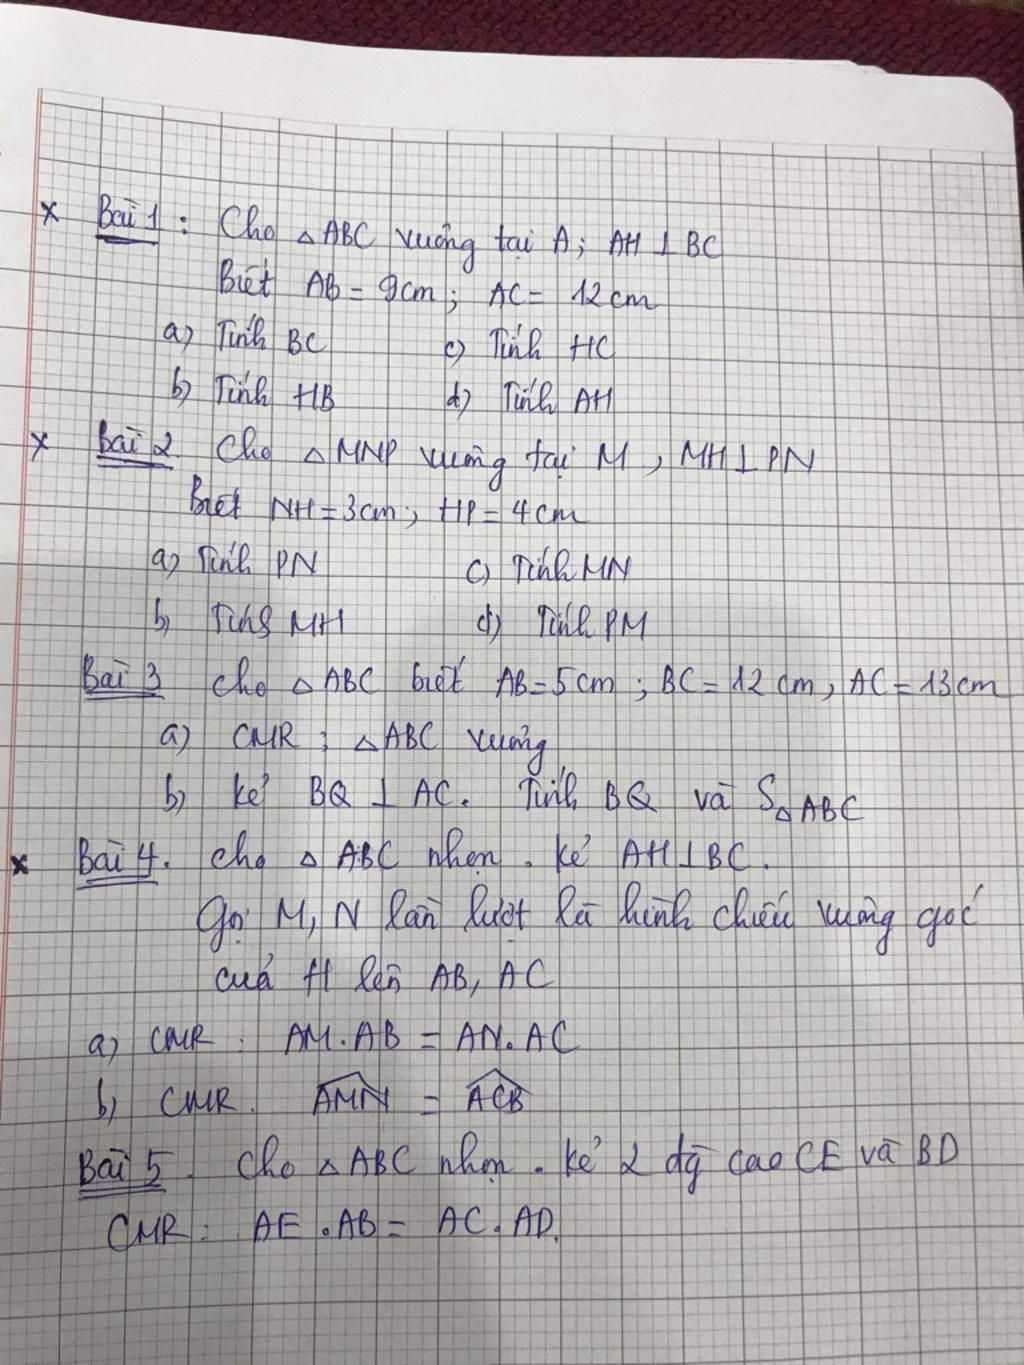 x Bài 1 : Cho △ABC vuông tại A; AH ⊥ BC
Biết AB = 9cm; AC = 12cm
a) Tính BC c) Tính HC
b) Tính HB d) Tính AH
x Bài 2 Cho △MNP vuông tại M, MH⊥PN
Biết NH=3cm; HP=4cm
a) Tính PN c) Tính MN
b) Tính MH d) Tính PM
Bài 3 Cho △ABC biết AB=5cm; BC=12cm, AC=13cm
a) CMR : △ABC vuông
b) kẻ BQ ⊥ AC. Tính BQ và S△ABC
x Bài 4. Cho △ABC nhọn. Kẻ AH⊥BC.
Gọi M, N lần lượt là hình chiếu vuông góc
của H lên AB, AC
a) CMR : AM.AB = AN.AC
b) CMR. \widehat{AMN} = \widehat{ACB}
Bài 5. Cho △ABC nhọn. Kẻ 2 đg cao CE và BD
CMR : AE.AB = AC.AD.